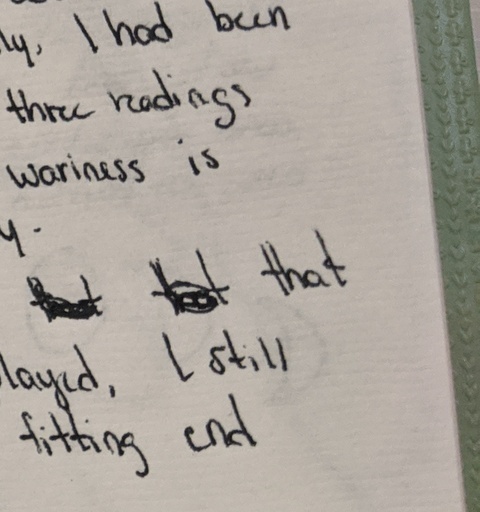 ly, I had been
three readings
wariness is
y.
that
layed, I still
fitting end